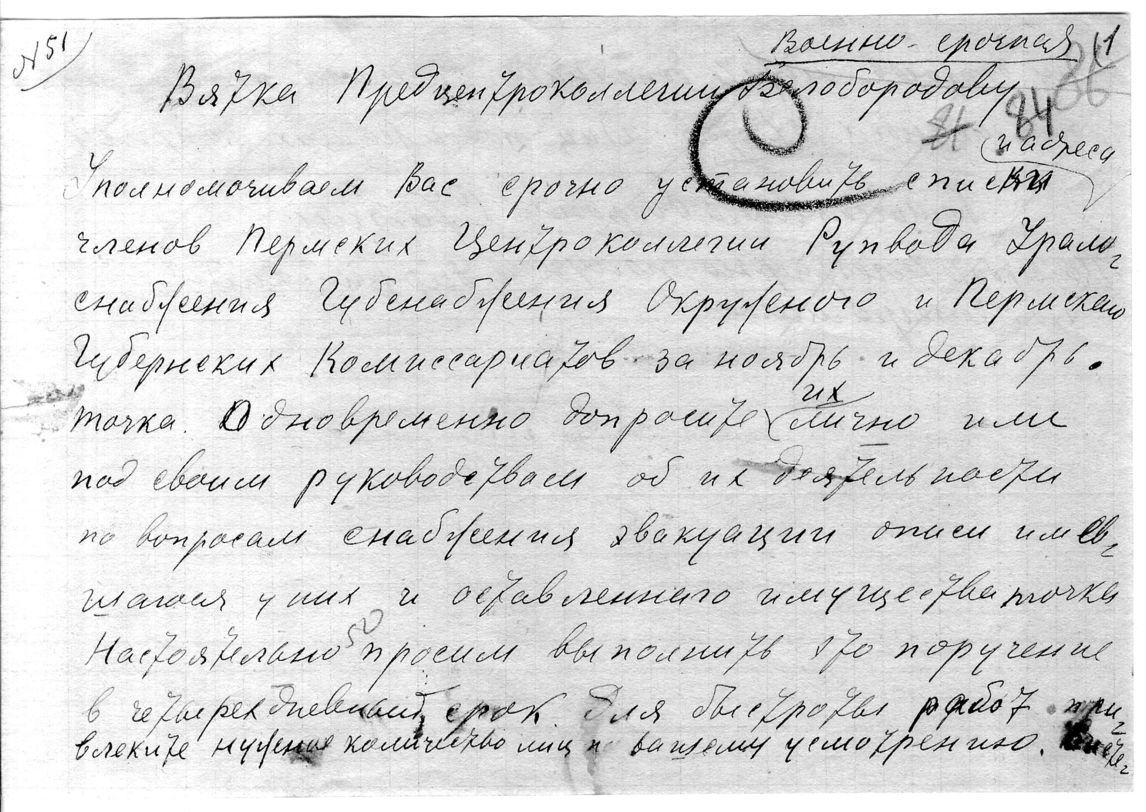 N 51
Военно-срочная
11
26
06
Вятка Предцентроколлегии Белобородову
81 84
и адреса
Уполномочиваем Вас срочно установить списки
членов Пермских Центроколлегии Рупвода Урало-
снабжения Губснабжения Окружного и Пермского
Губернских Комиссариатов за ноябрь и декабрь.
их
точка. Одновременно допросите лично или
под своим руководствам об их деятельности
по вопросам снабжения эвакуации описи имев-
шагося у них и оставленнаго имущества точка
50
Настоятельно просим выполнить это поручение
в четырехдневный срок. Для быстроты работ при-
влеките нужное количество лиц по вашему усмотрению.